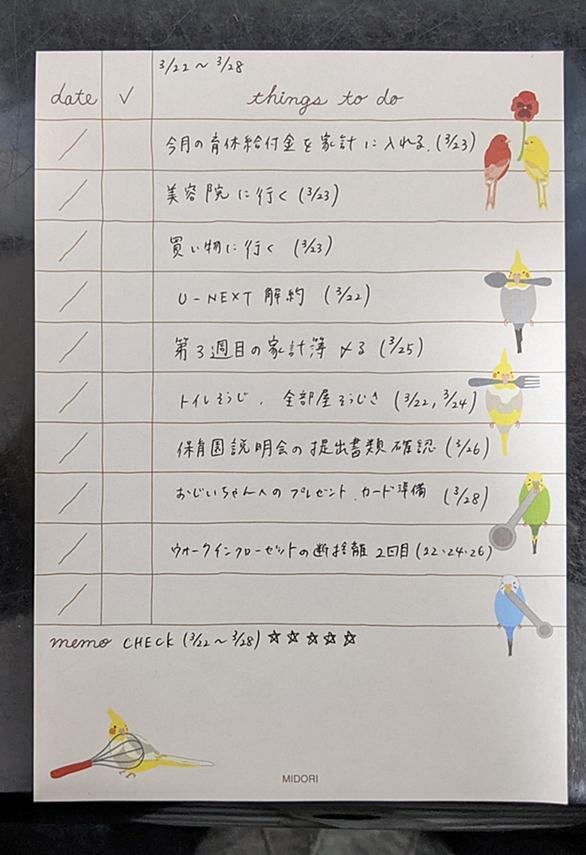 3/22 ~ 3/28
date ✓ things to do
今月の育休給付金を家計に入れる. (3/23)
美容院に行く (3/23)
買い物に行く (3/23)
U-NEXT 解約 (3/22)
第3週目の家計簿〆る (3/25)
トイレそうじ, 全部屋そうじき (3/22, 3/24)
保育園説明会の提出書類確認 (3/26)
おじいちゃんへのプレゼント, カード準備 (3/28)
ウォークインクローゼットの断捨離 2回目 (22・24・26)
memo CHECK (3/22 ~ 3/28) ☆☆☆☆☆
MIDORI